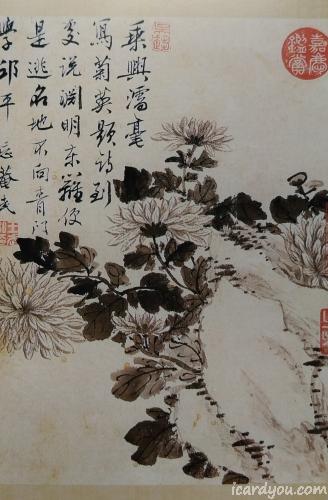 乘興濡毫
寫菊英題詩到
處說淵明東籬便
是逃名地不向青門
學邵平 忘菴
嘉慶鑑賞
icardyou.com